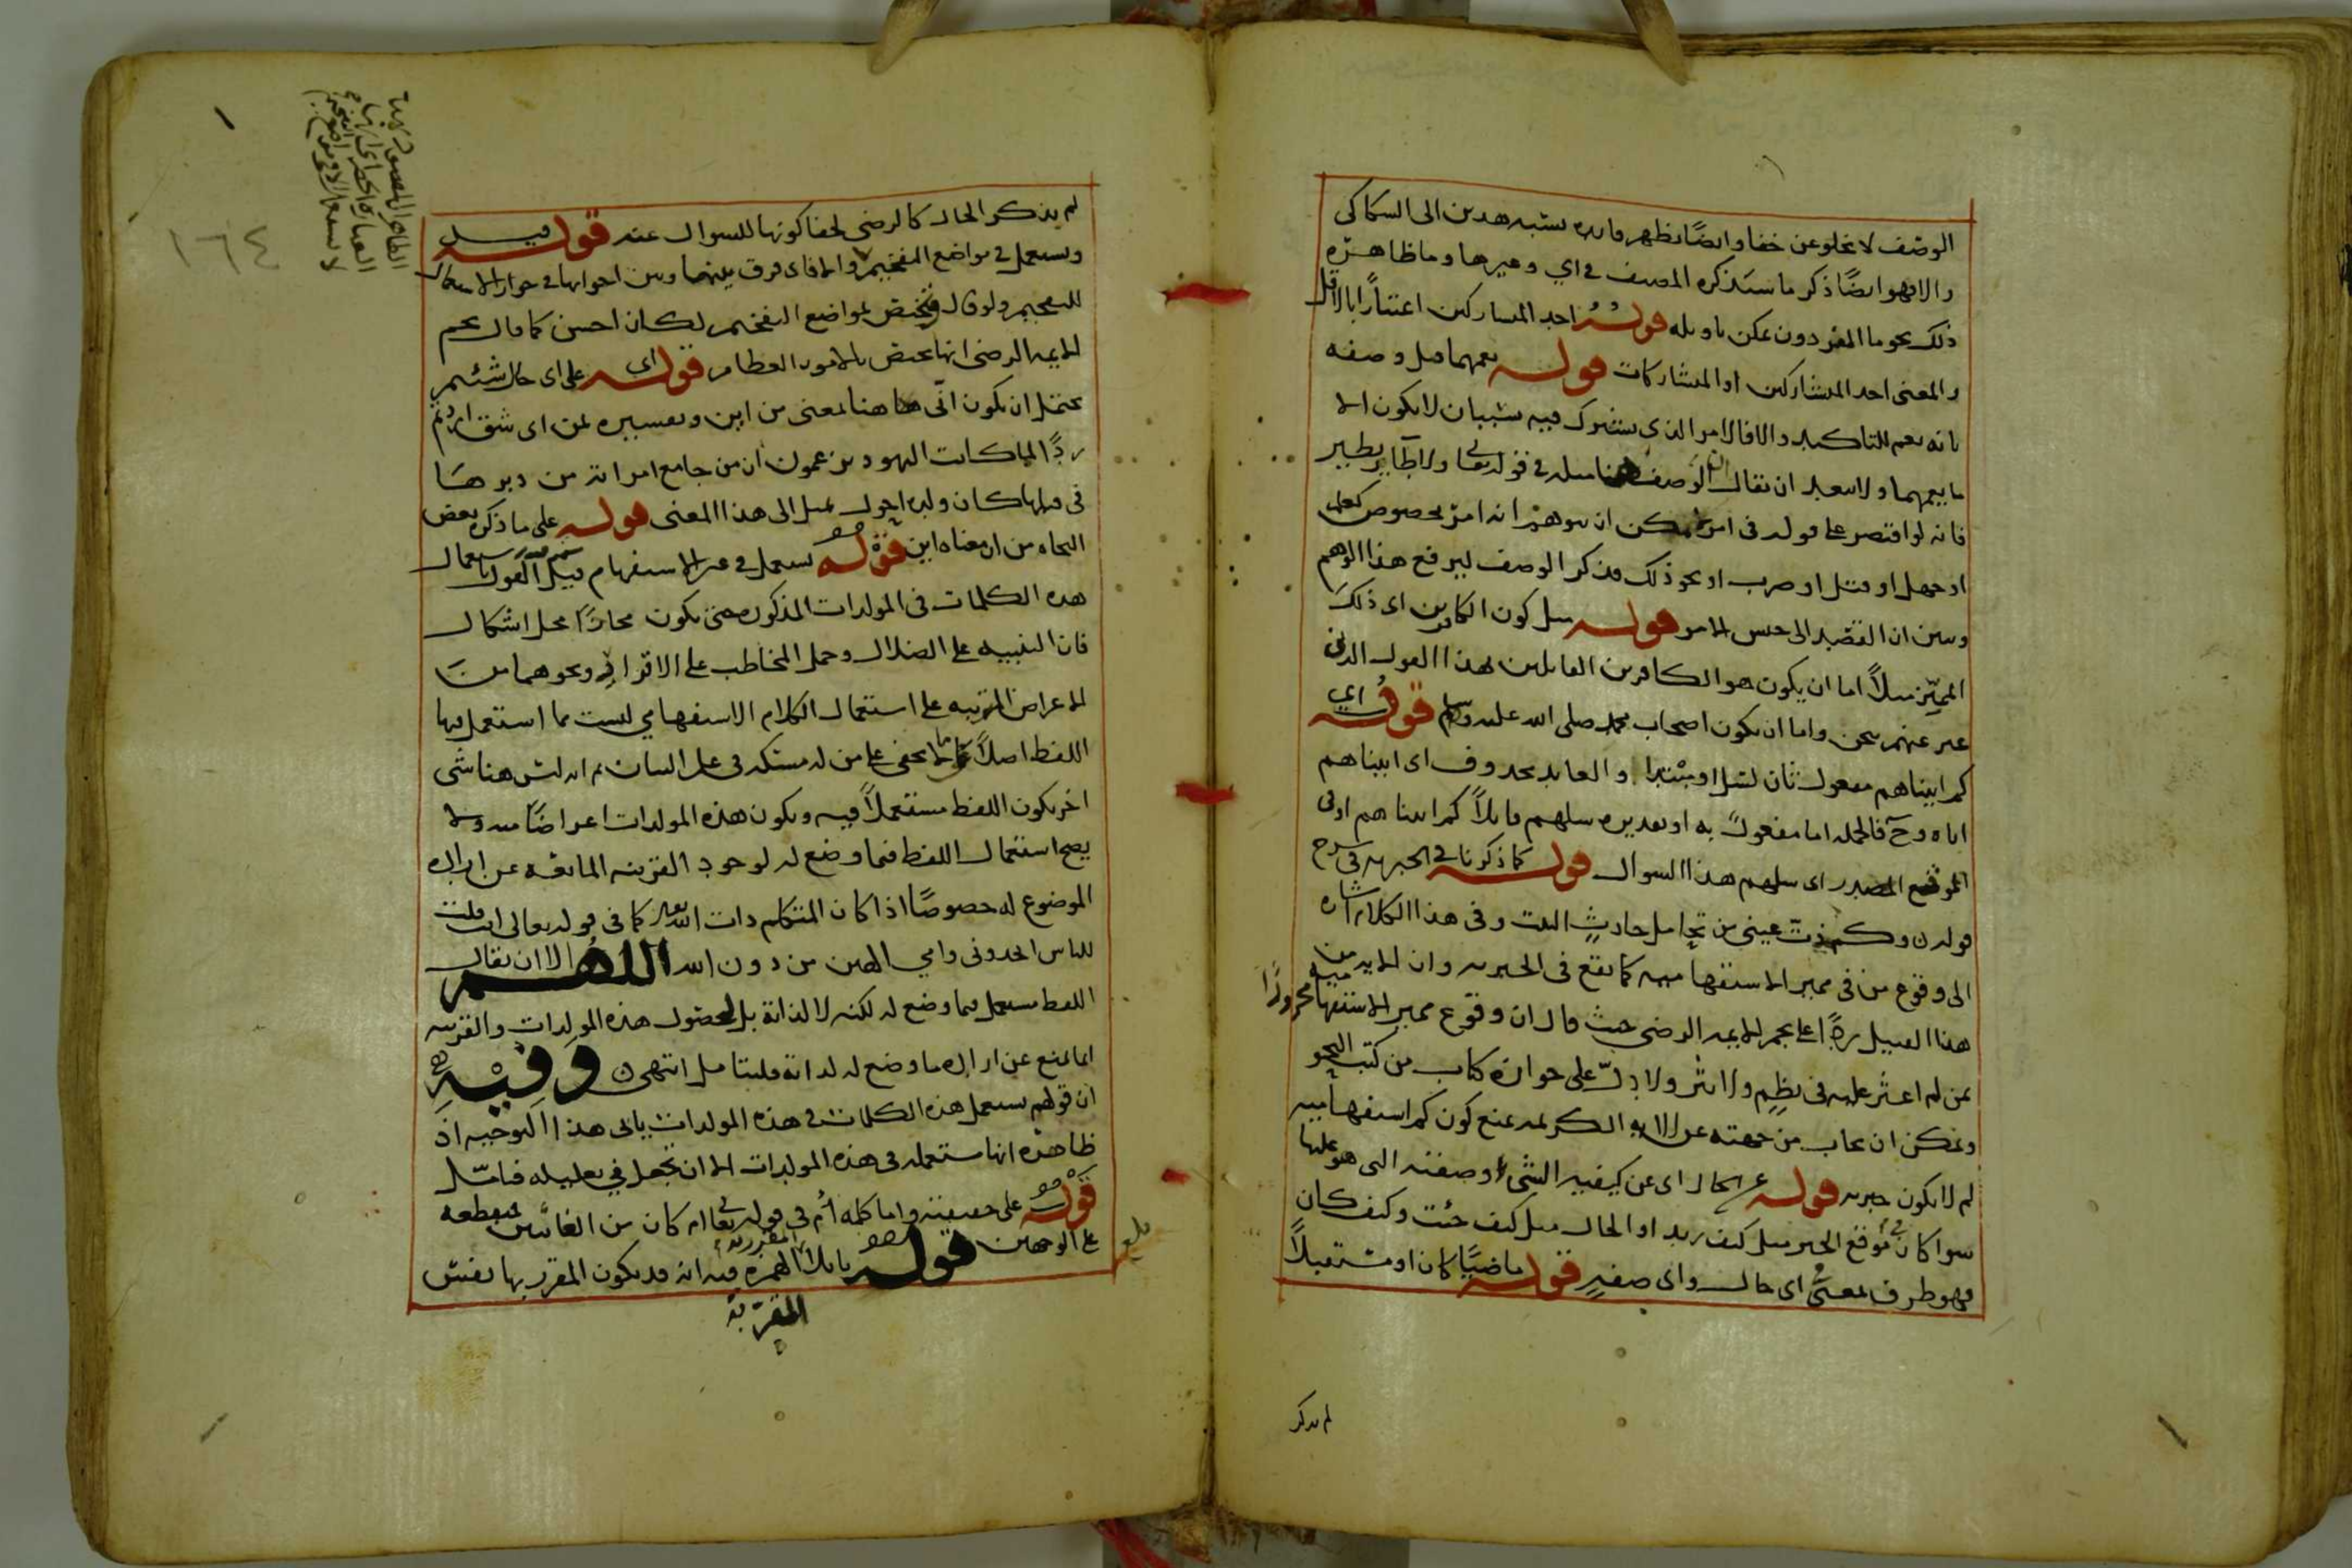 الوصف لا يخلو عن خفا وايضًا يظهر فايده تشبيه هدين الى السكاكى
والا فهو ايضًا ذكر ما سيذكره المصنف فى اي وغيرها وما ظاهره
ذلك نحو ما المفرد دون يمكن تاويله قوله احد المتشاركين اعتبارًا بالاقل
والمعنى احد المتشاركين او المتشاركات قوله يعمهما قيل وصفه
بانه يعم للتاكيد والا فالامر الذى يشترك فيه شيئان لا يكون الا
ما يعمهما ولا يبعد ان يقال الوصف هنا مثله فى قوله تعا ولا طاير يطير
فانه لو اقتصر على قوله فى امر لامكن ان يتوهم انه امر مخصوص كعلم
او جهل او قتل او ضرب او نحو ذلك فذكر الوصف ليرفع هذا الوهم
وبين ان القصد الى جنس الامر قوله مثل كون الكافرين اى ذلك
المميّز مثلًا اما ان يكون هو الكافرين القايلين لهذا القول الذى
عبر عنهم بنحن واما ان يكون اصحاب محمد صلى الله عليه وسلم قوله اي
كم اتيناهم مفعول ثان لسل او مبتدا والعايد محذوف اى اتيناهم
اياه وح فالجمله اما مفعول به او تقديره سلهم قايلًا كم اتيناهم او فى
موقع المصدر اى سلهم هذا السوال قوله كما ذكرنا فى الخبريه فى شرح
قوله وكم ذدت عينى من تحامل حادثٍ البيت وفى هذا الكلام اشاره
الى وقوع من فى مميز الاستفهاميه كما يقع فى الخبريه وان الايه من
هذا القبيل ردًا على نجم الايمه الرضى حيث قال ان وقوع مميز الاستفهاميه مجرورًا
بمن لم اعثر عليه فى نظم ولا نثر ولا دلّ على جوازه كتاب من كتب النحو
ويمكن ان يجاب من جهته عن الايه الكريمه بمنع كون كم استفهاميه
لم لا يكون خبريه قوله عن الحال اى عن كيفيه الشىء وصفته التى هو عليها
سوا كان فى موقع الخبر مثل كيف زيد او الحال مثل كيف جئت وكيف كان
فهو ظرف لمعنى اى حال واى صفهٍ قوله ماضيًا كان او مستقبلًا
لم يذكر
لم يذكر الحال كالرضى لخفا كونها للسوال عنه قوله قيل
ويستعمل فى مواضع التفخيم والا فاى فرق بينها وبين اخواتها فى جواز الاستعمال
للتفخيم ولو قال فيختص بمواضع التفخيم لكان احسن كما قال نجم
الايمه الرضى انها تختص بالامور العظام قوله اى على اى حال شئتم
يحتمل ان يكون انّى هاهنا بمعنى من اين وتفسيره بمن اى شق اردتم
ردًّا لما كانت اليهود يزعمون ان من جامع امراته من دبرها
فى قبلها كان ولده احول يميل الى هذا المعنى قوله على ما ذكره بعض
النحاه من ان معناه اين قوله يستعمل فى غير الاستفهام قيل القول باستعمال
هذه الكلمات فى المولدات المذكوره حتى يكون مجازًا محل اشكال
فان التنبيه على الضلال وحمل المخاطب على الاقرار ونحوهما من
الاعراض المترتبه على استعمال الكلام الاستفهامي ليست مما استعمل فيها
اللفظ اصلًا كما لا يخفى على من له مسكه فى علم البيان ثم انه ليس هنا شى
اخر يكون اللفظ مستعملًا فيه ويكون هذه المولدات اعراضًا منه ولا
يصح استعمال اللفظ فيما وضع له لوجود القرينه المانعه عن اراده
الموضوع له خصوصًا اذا كان المتكلم ذات الله تعا كما فى قوله تعالى اانت قلت
للناس اتخدونى وامي الهين من دون الله اللهم الا ان يقال
اللفظ مستعمل فيما وضع له لكنه لا لذاته بل لحصول هذه المولدات والقرينه
انما تمنع عن اراده ما وضع له لذاته فليتامل انتهى وفيه
ان قولهم يستعمل هذه الكلمات فى هذه المولدات يابى هذا التوجيه اذ
ظاهره انها مستعمله فى هذه المولدات الا ان تجعل في تعليله فتامّل
قوله على حقيقته واما كلمه أم فى قوله تعا ام كان من الغائبين فمنقطعه
على الوجهين قوله بايلا المقرر به الهمزه فيه انه قد يكون المقرر بها نفس
المقرّ به
بلغ
لا يستعمل الا فى مواضع التفخيم
١٦٤